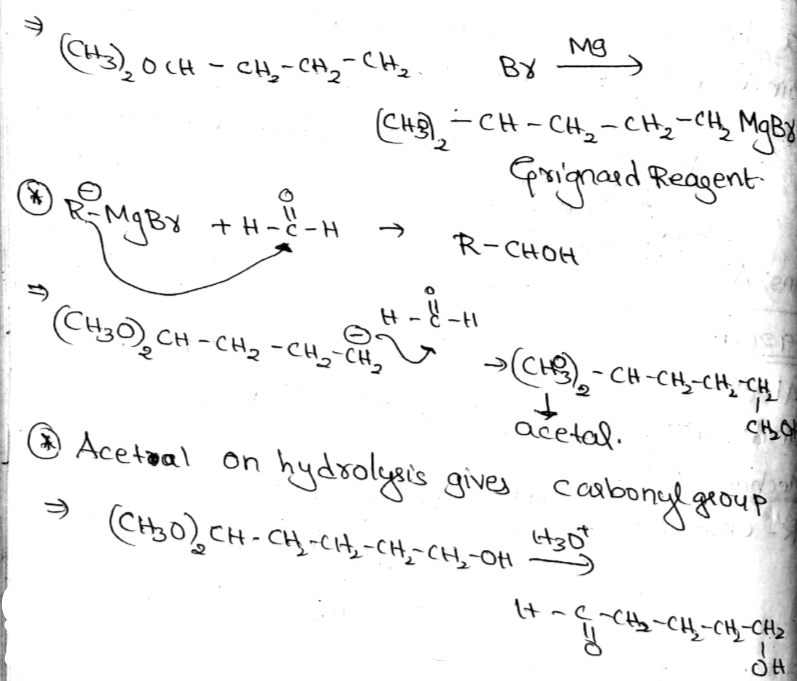 ⇒ (CH3)2 OCH - CH2-CH2-CH2. Br Mg →
(CH3)2 - CH - CH2 - CH2 - CH2 MgBr
Grignard Reagent
⊛ R⊖-MgBr + H-C(=O)-H → R-CHOH
⇒ (CH3O)2 CH-CH2-CH2-CH2⊖ H-C(=O)-H
→ (CH3O)2 - CH-CH2-CH2-CH2
↓ acetal. CH2O
⊛ Acetal on hydrolysis gives carbonyl group
⇒ (CH3O)2 CH-CH2-CH2-CH2-CH2-OH H3O+ →
H-C(=O)-CH2-CH2-CH2-CH2-OH